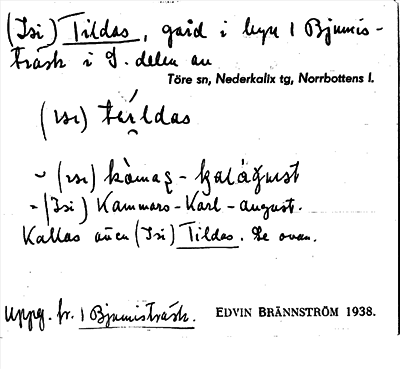 (Isi) Tildas, gård i byn 1 Bjumis-
träsk i S. delen av
Töre sn, Nederkalix tg, Norrbottens l.
(ısı) 
~ (ısı) 
~ (Isi) Kammars-Karl-august.
Kallas även (Isi) Tildas. Se ovan.
Uppg. fr. 1 Bjumisträsk. EDVIN BRÄNNSTRÖM 1938.